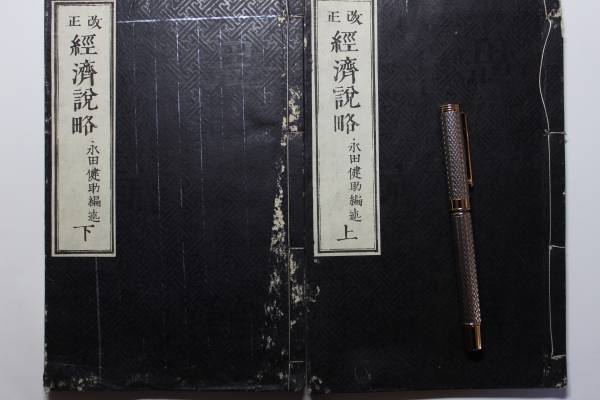 改正
經濟說略
永田健助編述
上
改正
經濟說略
永田健助編述
下